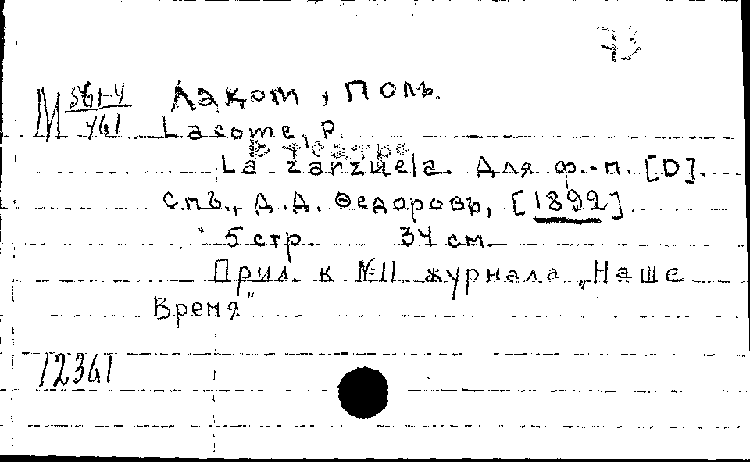 73
М 561-4/461
Лакот, Поль.
Lacome, P.
В театре
La zarzuela. Для ф.-п. [D].
Спб., Д.Д. Ѳедоровъ, [1892].
5 стр. 34 см.
Прил. к №11 журнала „Наше
Время"
12361